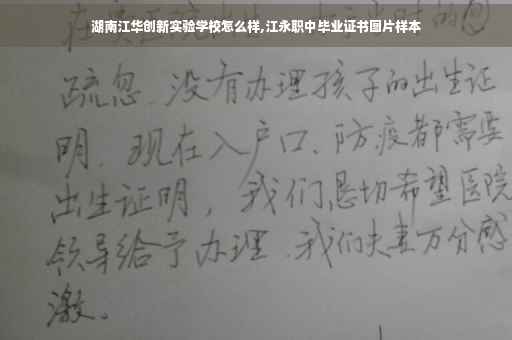 湖南江华创新实验学校怎么样,江永职中毕业证书图片样本
疏忽.没有办理孩子的出生证
明.现在入户口、防疫都需要
出生证明，我们恳切希望医院
领导给予办理.我们夫妻万分感
激。